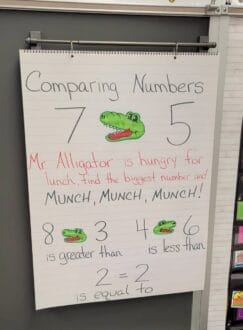 Comparing Numbers
7 5
Mr Alligator is hungry for
lunch, find the biggest number and
MUNCH, MUNCH, MUNCH!
8 3 4 6
is greater than is less than
2 = 2
is equal to